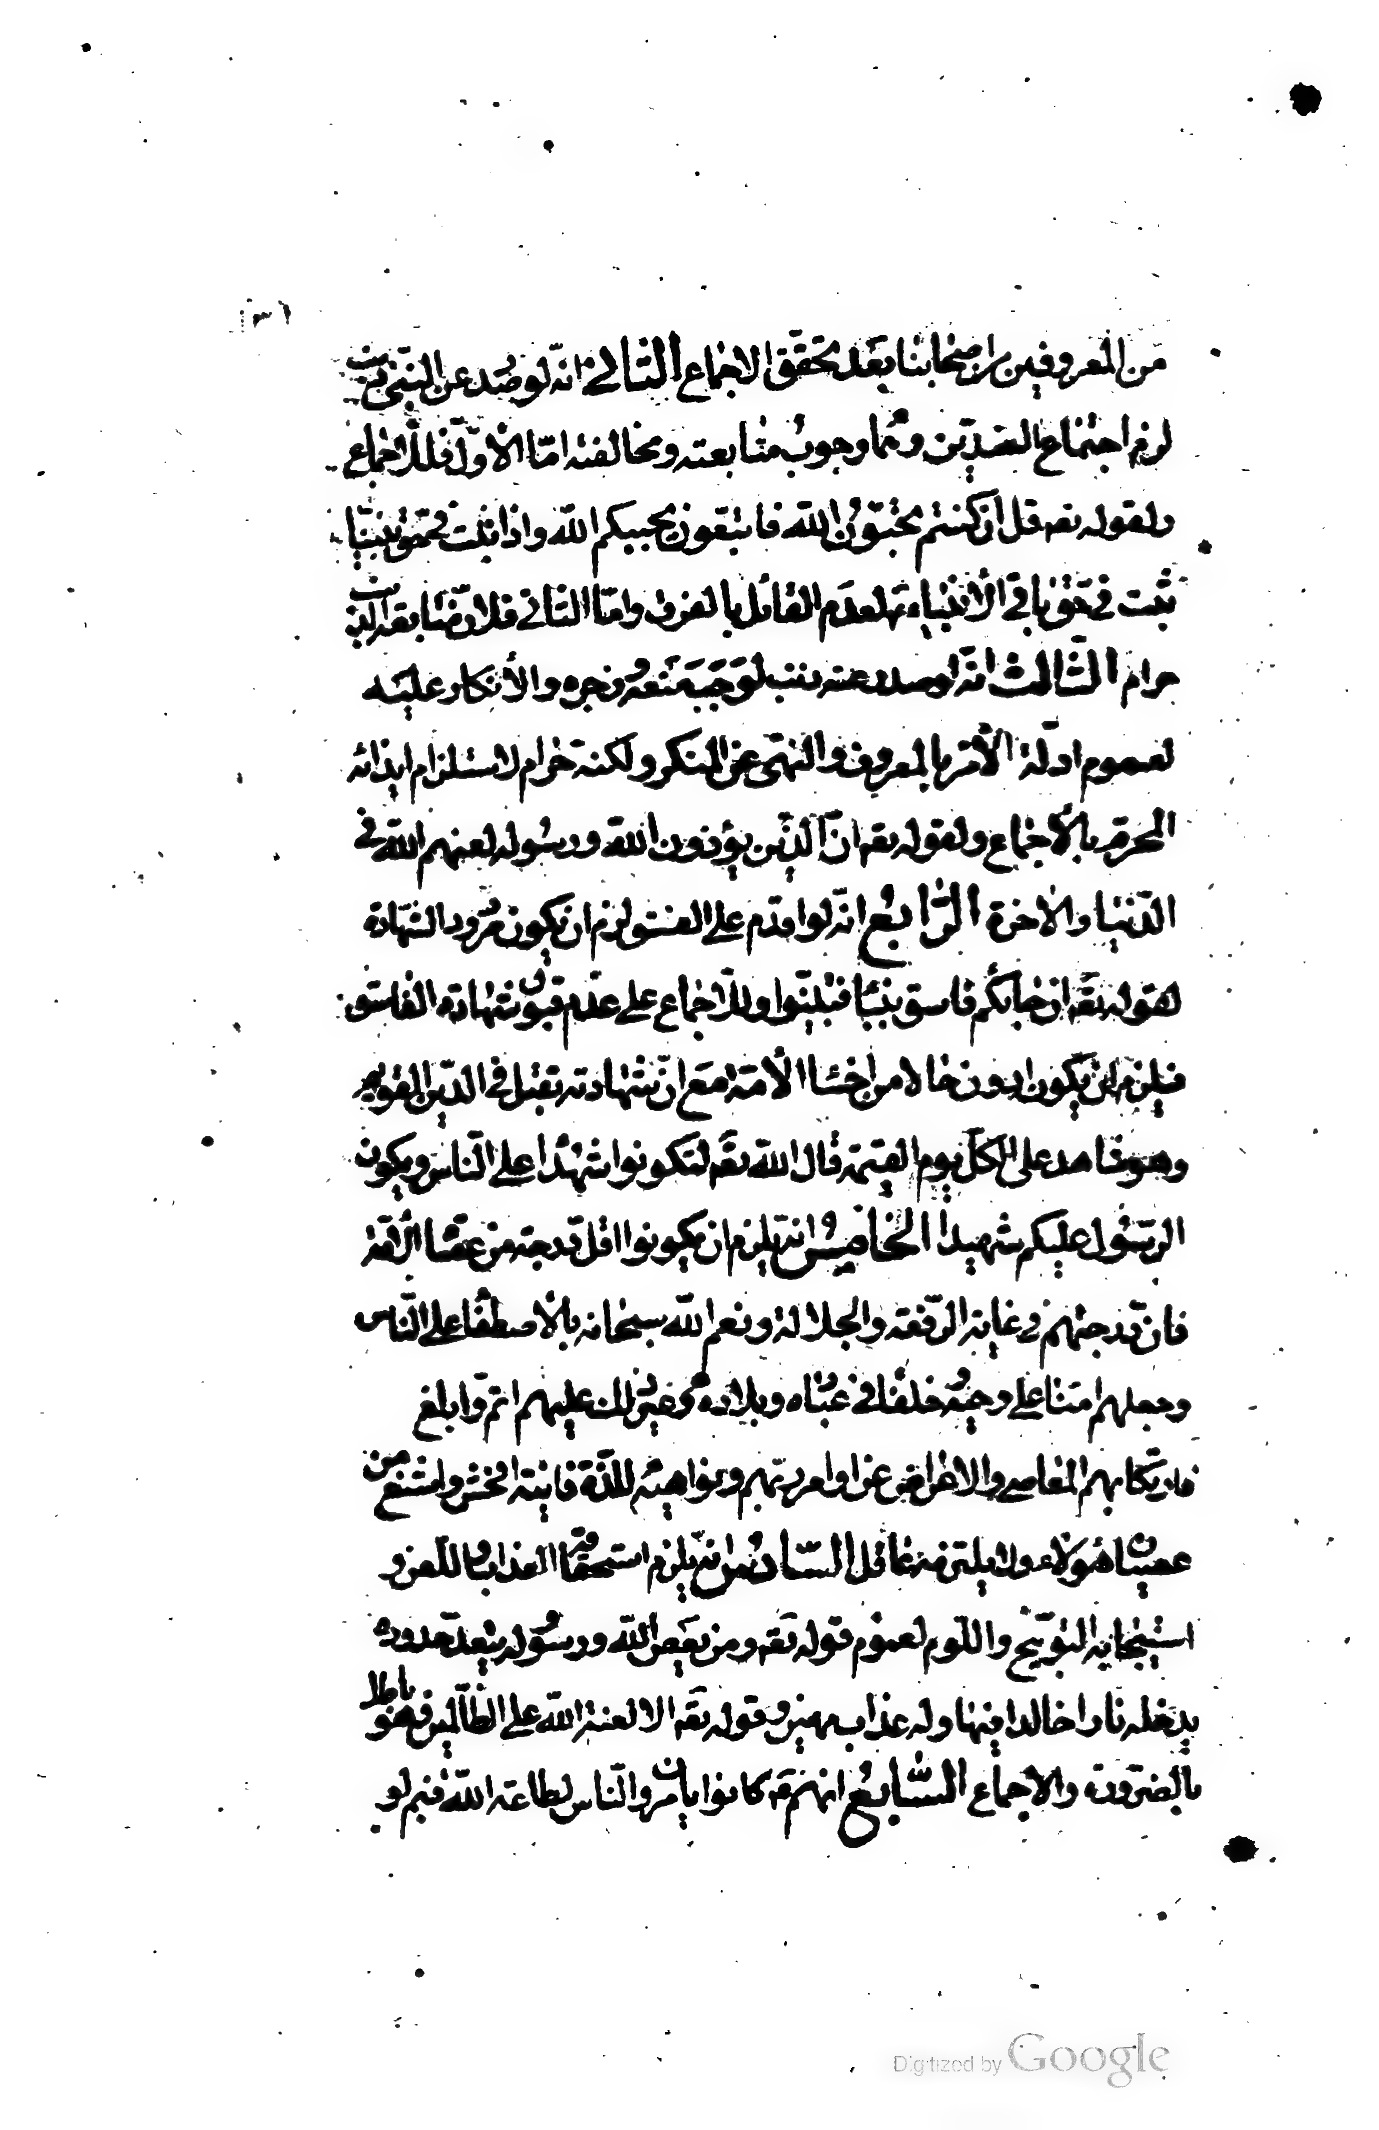 ١٣١
من المعروفين من اصحابنا بعد تحقق الاجماع الثانى انه لو صدر عن النبى ذنب
لزم اجتماع الضدين وهما وجوب متابعته ومخالفته امّا الاوّل فللاجماع
ولقوله تعه قل ان كنتم تحبّون الله فاتبعونى يحببكم الله واذا ثبت فى حق نبيّنا
ثبت فى حق باقى الأنبياء لعدم القائل بالفرق وامّا الثانى فلان متابعة الذنب
حرام الثالث انّه لو صدر عنه ذنب لوجب منعه وزجره والأنكار عليه
لعموم ادلة الأمر بالمعروف والنهى عن المنكر ولكنه حرام لاستلزام ايذائه
المحرم بالأجماع ولقوله تعه انّ الذين يؤذون الله ورسوله لعنهم الله فى
الدّنيا والاخرة الرّابع انّه لو اقدم على الفسق لزم ان يكون مردود الشهادة
لقوله تعه ان جائكم فاسق بنبأ فتبيّنوا وللاجماع على عدم قبول شهادة الفاسق
فيلزم ان يكون ادون حالا من اخسّا الأمة مع انّ شهادته تقبل فى الدّين القويم
وهو شاهد على الكل يوم القيمة قال الله تعه لتكونوا شهدا على النّاس ويكون
الرّسول عليكم شهيدا الخامس انه يلزم ان يكونوا اقل درجة من عصّا الأمّة
فانّ درجتهم فى غاية الرّفعة والجلالة ونعم الله سبحانه بالاصطفا على النّاس
وجعلهم امنّا على وحيه وخلفا فى عباده وبلاده وغير ذلك عليهم اتمّ وابلغ
فارتكابهم المعاصى والاعراض عن اوامر ربّهم ونواهيه للذّة فانية افحش واشنع من
عصيان هؤلاء ولا يلتزمه عاقل السّادس انه يلزم استحقاقه العذاب واللعن و
استيجابه التّوبيخ واللّوم لعموم قوله تعه ومن يعص الله ورسوله ويتعدّ حدوده
يدخله نارا خالدا فيها وله عذاب مهين وقوله تعه الا لعنة الله على الظّالمين وهو باطل
بالضّرورة والاجماع السّابع انهم كانوا يأمرون النّاس لطاعة الله فهم لو
Digitized by Google